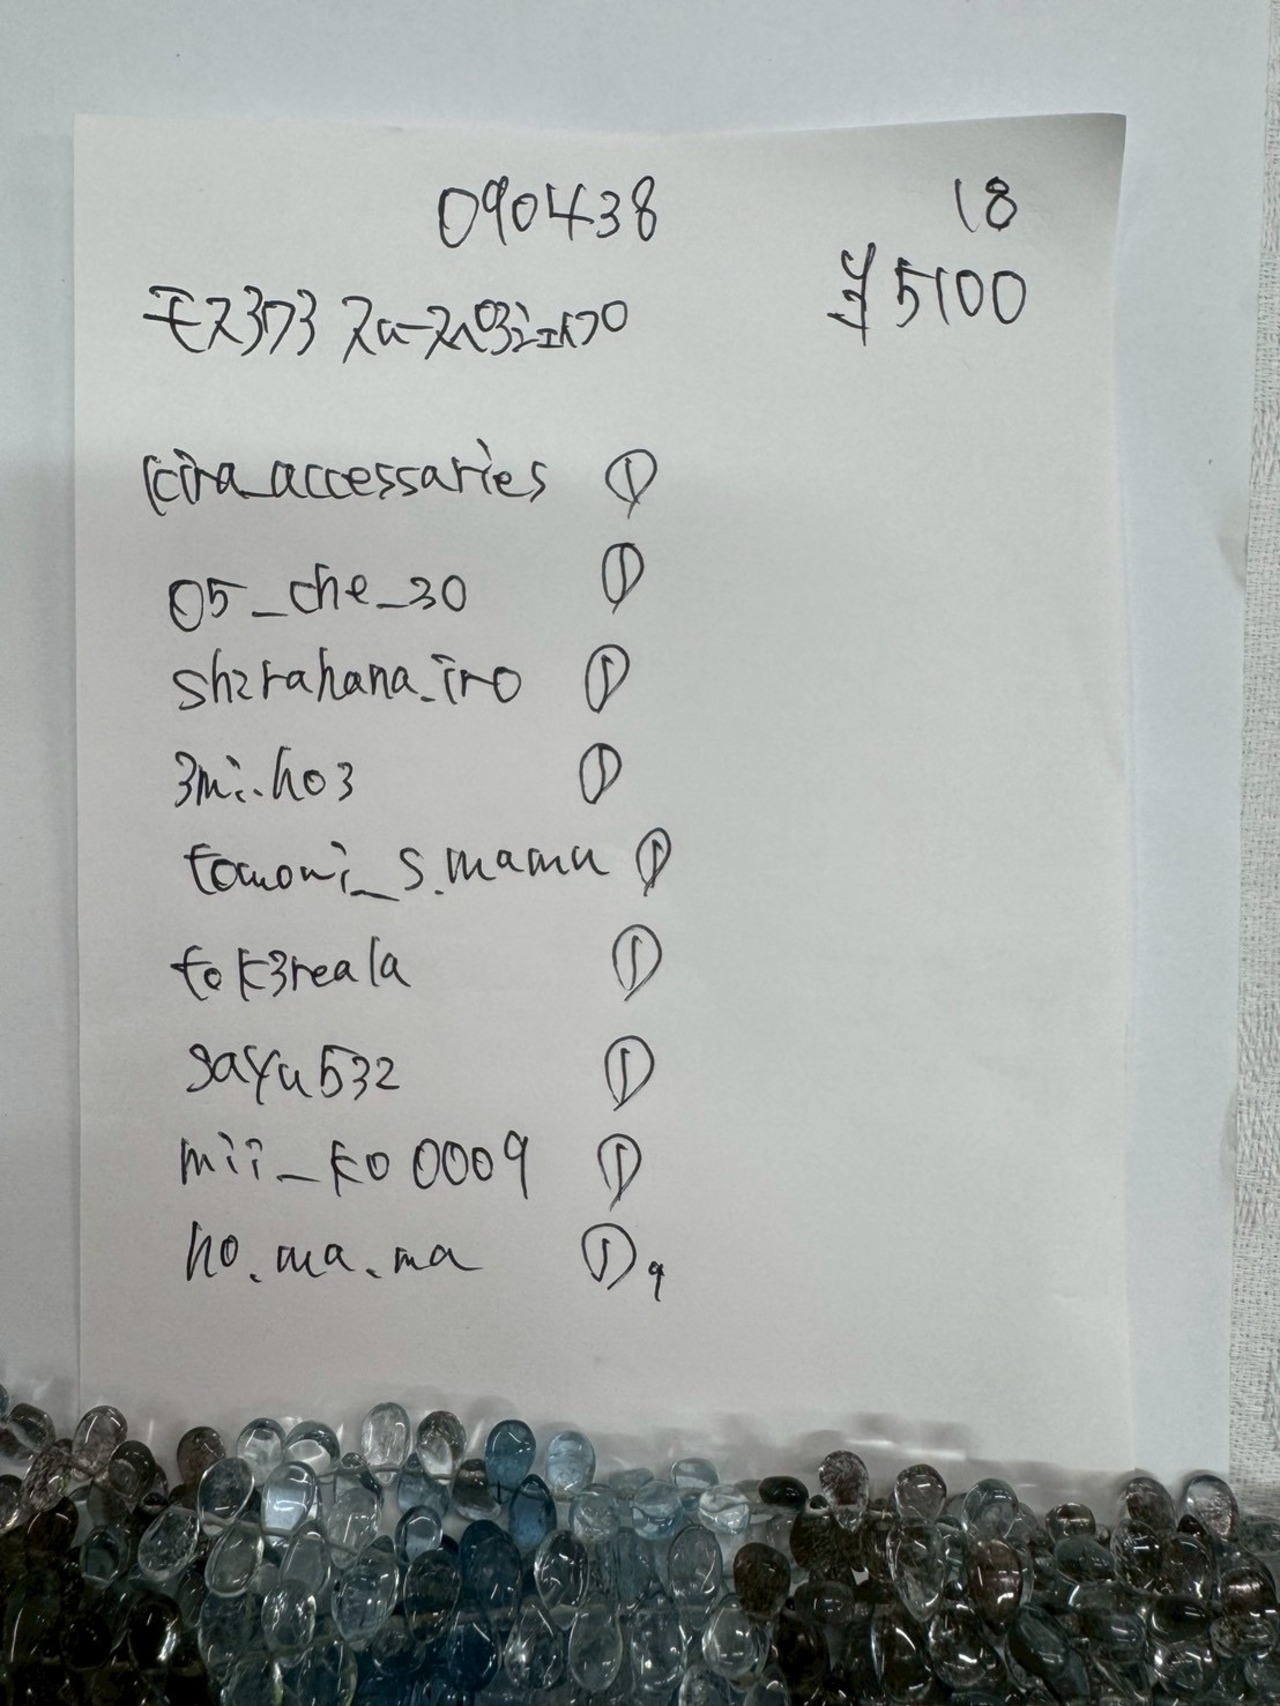 090438 18
¥5100
kira_accessaries ①
05_che_30 ①
shirahana_iro ①
3mi.ho3 ①
tomomi_s.mama ①
tok3reala ①
sayu532 ①
mii_ko0009 ①
ho.ma.ma ① 9